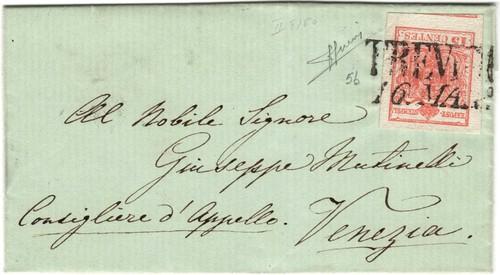 15 CENTES.
16. MA
56
Al Nobile Signore
Giuseppe Mutinelli
Consigliere d'Appello.
Venezia.